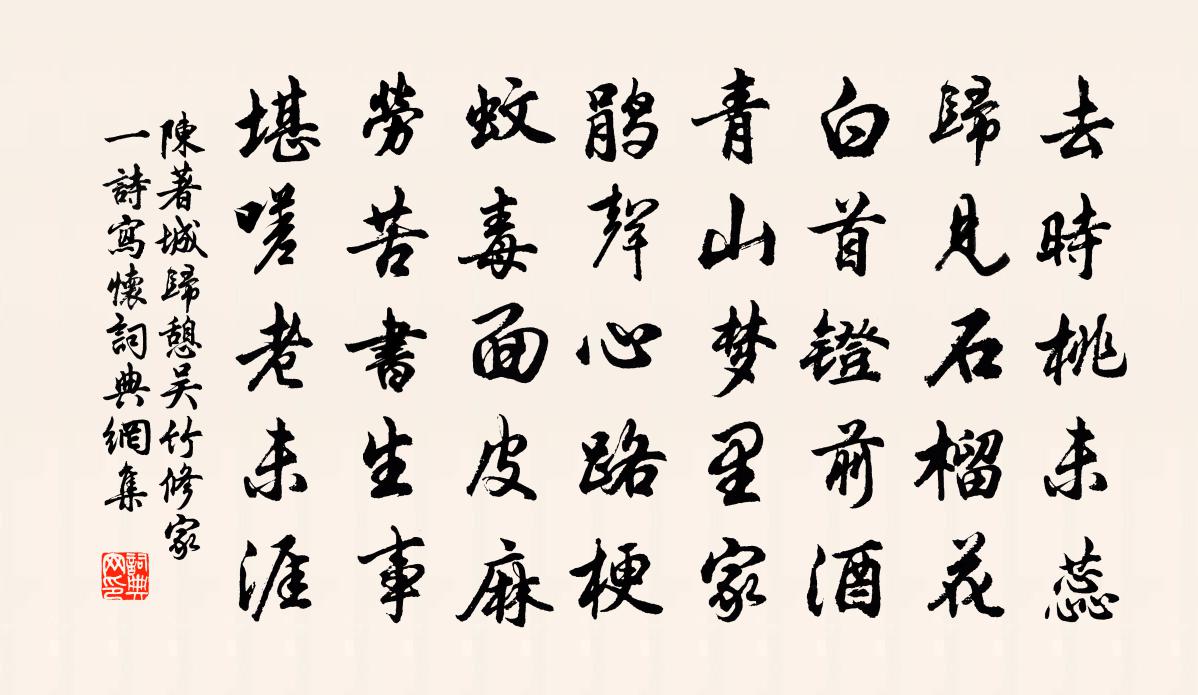 去時桃未蕊
歸見石榴花
白首鐙前酒
青山梦里家
鵑聲心路梗
蚊毒面皮麻
勞苦書生事
堪嗟老未涯
陳著城歸憩吴竹修家
一詩寫懷詞典網集
詞典
网印